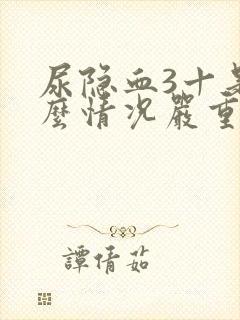 尿隐血3十是
麼情况嚴重
譚倩茹